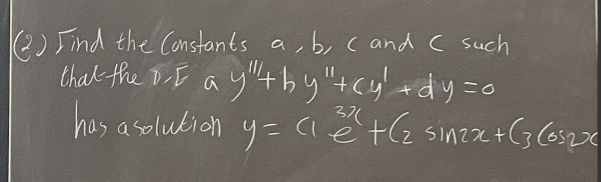 (2) Find the Constants a, b, c and c such
that the D.E a y''' + b y'' + cy' + dy = 0
has a solution y = c1 e^3x + C2 sin2x + C3 Cos2x